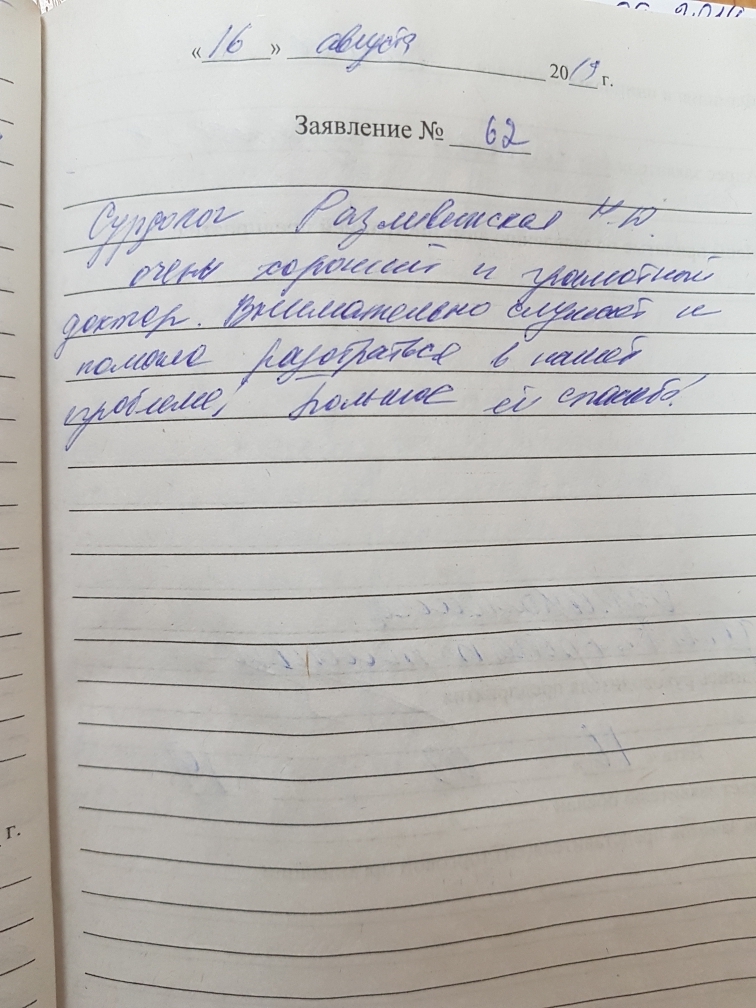 «16» августа 2019 г.
Заявление № 62
Сурдолог Разливинская Н.Ю.
очень хороший и грамотный
доктор. Внимательно слушает и
помогла разобраться в нашей
проблеме, Большое ей спасибо!
г.